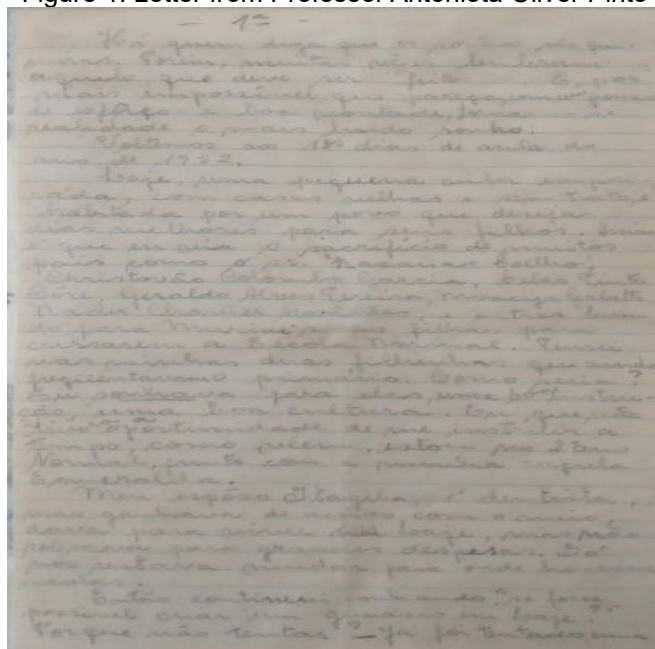 Figure 1. Letter from Professor Antonieta Oliver Pinto
- 1ª -
Há quem diga que os sonhos são qui-
meras. Porém, muitas vezes lembram-
aquilo que deve ser feito. E por
mais impossível que pareça, com um pouco
de esfôrço e boa vontade, torna-se
realidade o mais lindo sonho.
Voltemos aos 180 dias de aula do
ano de 1972.
Laje, uma pequena
com casas velhas e sem trato, é
habitada por um povo que deseja
dias melhores para seus filhos. Assim
é que eu via o sacrifício de muitos
pais como o sr. Nazarias Coelho,
Christovão Colombo Garcia, Celso Pinto
Geraldo Alves Pereira, Moacyr
Nadir e outros
do para seus filhos para
cursarem a Escola Normal. Pensei
nas minhas duas filhinhas que ainda
frequentavam primário. Como seria?
Eu sonhava para elas, uma boa instru-
ção, uma boa cultura. Eu que não
tive oportunidade de me instruir a
tempo, como estou no 2º ano
Normal, junto com a minha
Esmeralda.
Meu espôso é dentista,
mas ganhava de acôrdo com o meio
dava para viver em Laje, mas não
sobrava para grandes despesas. Só
nos restava mudar para onde
Então continuei sonhando: "se fosse
possível criar um ginásio em Laje?"
Porque não tentas? - Já foi tentado, uma